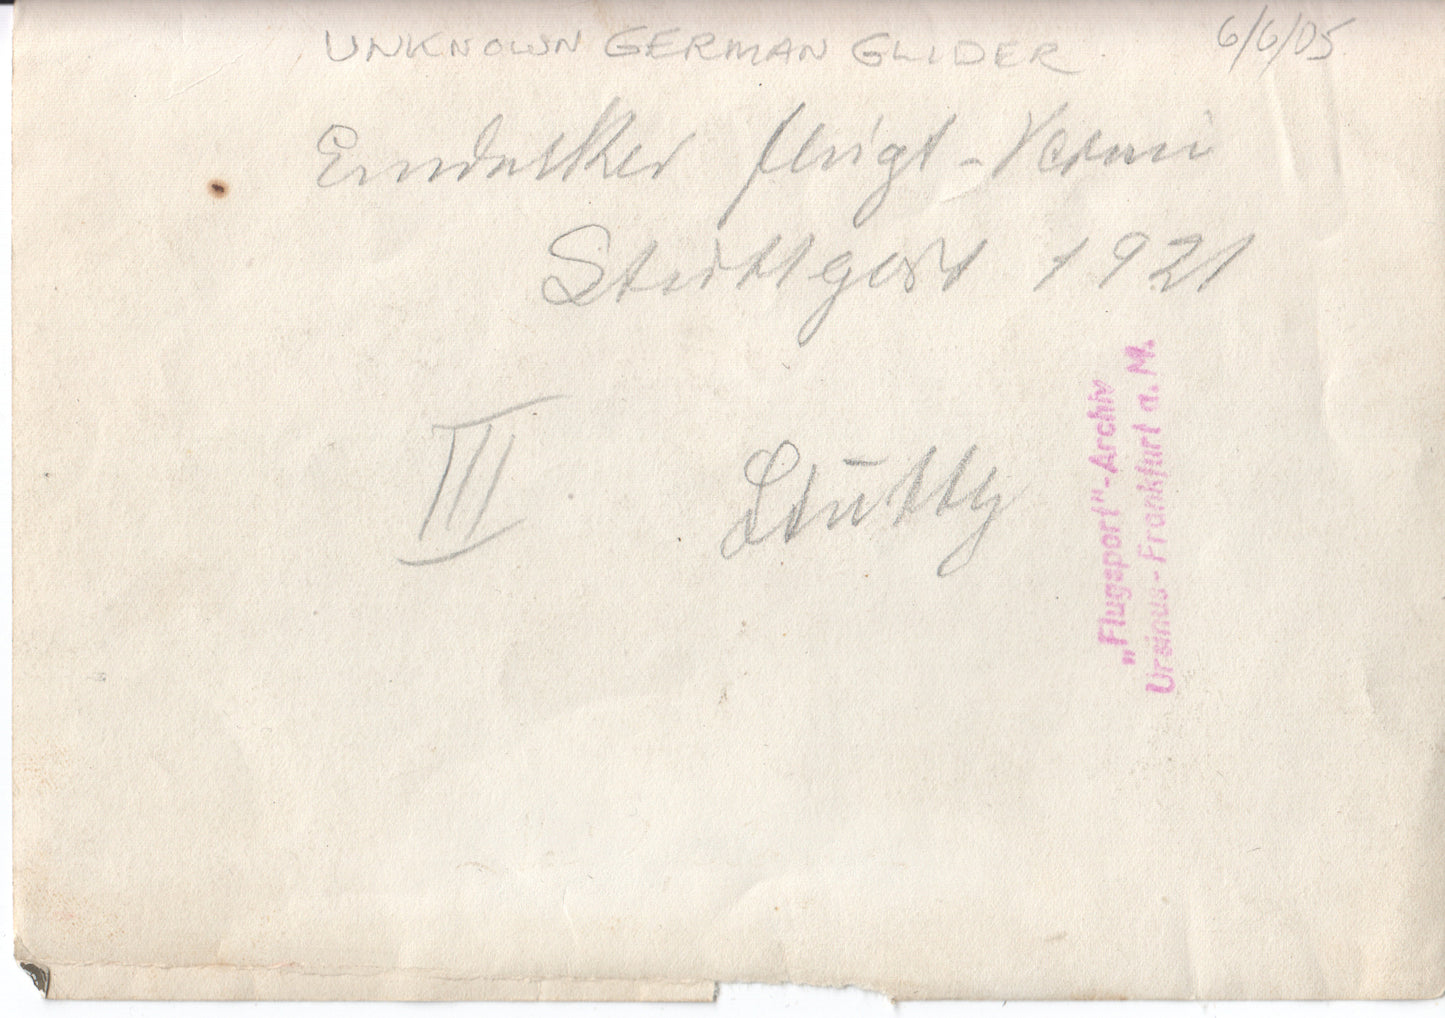 UNKNOWN GERMAN GLIDER 6/6/05
Eindecker flugt-Verein
Stuttgart 1921
III
„Flugsport"-Archiv
Ursinus-Frankfurt a. M.